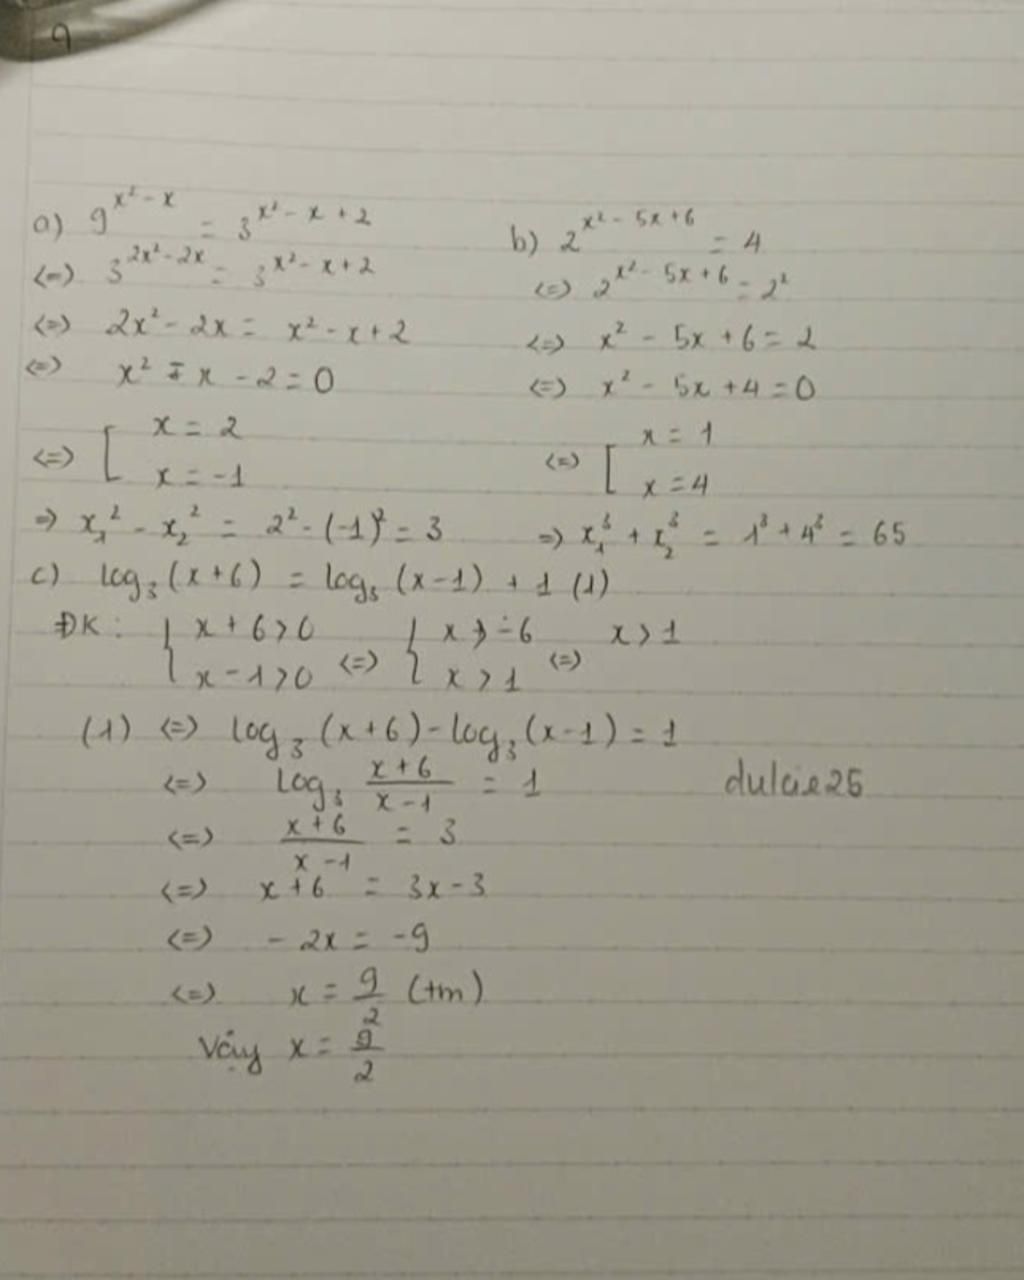 9
a) 9^{x² - x} = 3^{x² - x + 2}
<=> 3^{2x² - 2x} = 3^{x² - x + 2}
<=> 2x² - 2x = x² - x + 2
<=> x² - x - 2 = 0
<=> [ x = 2
x = -1
=> x₁² - x₂² = 2² - (-1)² = 3
b) 2^{x² - 5x + 6} = 4
<=> 2^{x² - 5x + 6} = 2²
<=> x² - 5x + 6 = 2
<=> x² - 5x + 4 = 0
<=> [ x = 1
x = 4
=> x₁³ + x₂³ = 1³ + 4³ = 65
c) log₃ (x + 6) = log₃ (x - 1) + 1 (1)
ĐK: { x + 6 > 0 <=> { x > -6 <=> x > 1
x - 1 > 0 x > 1
(1) <=> log₃ (x + 6) - log₃ (x - 1) = 1
<=> log₃ \frac{x + 6}{x - 1} = 1
dulcie25
<=> \frac{x + 6}{x - 1} = 3
<=> x + 6 = 3x - 3
<=> - 2x = -9
<=> x = \frac{9}{2} (tm)
Vậy x = \frac{9}{2}